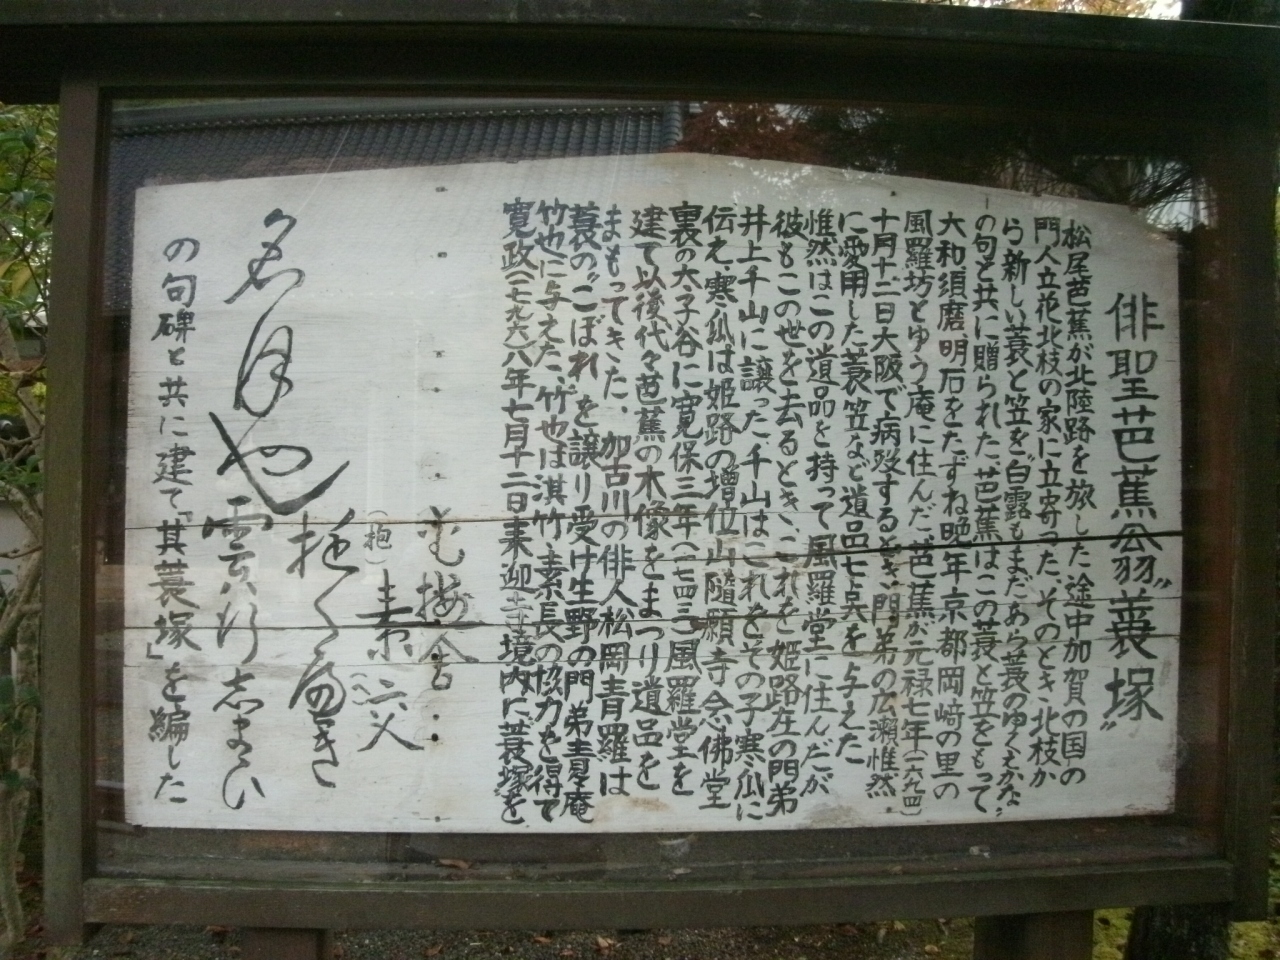 俳聖芭蕉公翁"蓑塚"
松尾芭蕉が北陸路を旅した途中加賀の国の
門人立花北枝の家に立寄った、そのとき北枝か
ら新しい蓑と笠を"白露もまだあら蓑のゆくえかな"
の句と共に贈られた、芭蕉はこの蓑と笠をもって
大和須磨明石をたずね晩年京都岡﨑の里の
風羅坊とゆう庵に住んだ、芭蕉が元禄七年(一六九四)
十月十二日大阪で病歿するとき、門弟の広瀬惟然
に愛用した蓑笠など遺品七点を与えた
惟然はこの遺品を持って風羅堂に住んだが
彼もこの世を去るとき、これを姫路在の門弟
井上千山に譲った千山はこれをその子寒瓜に
伝え寒瓜は姫路の増位山随願寺念佛堂
裏の太子谷に寛保三年(一七四三)風羅堂を
建て以後代々芭蕉の木像をまつり遺品を
まもってきた、加古川の俳人松岡青羅は
蓑の"こぼれ"を譲り受け生野の門弟
竹也に与えた、竹也は淇竹素長の協力を得て
寛政(一七九六)八年七月十二日来迎寺境内に蓑塚を
(抱)
名月や
雲
の句碑と共に建て「其蓑塚」を編した